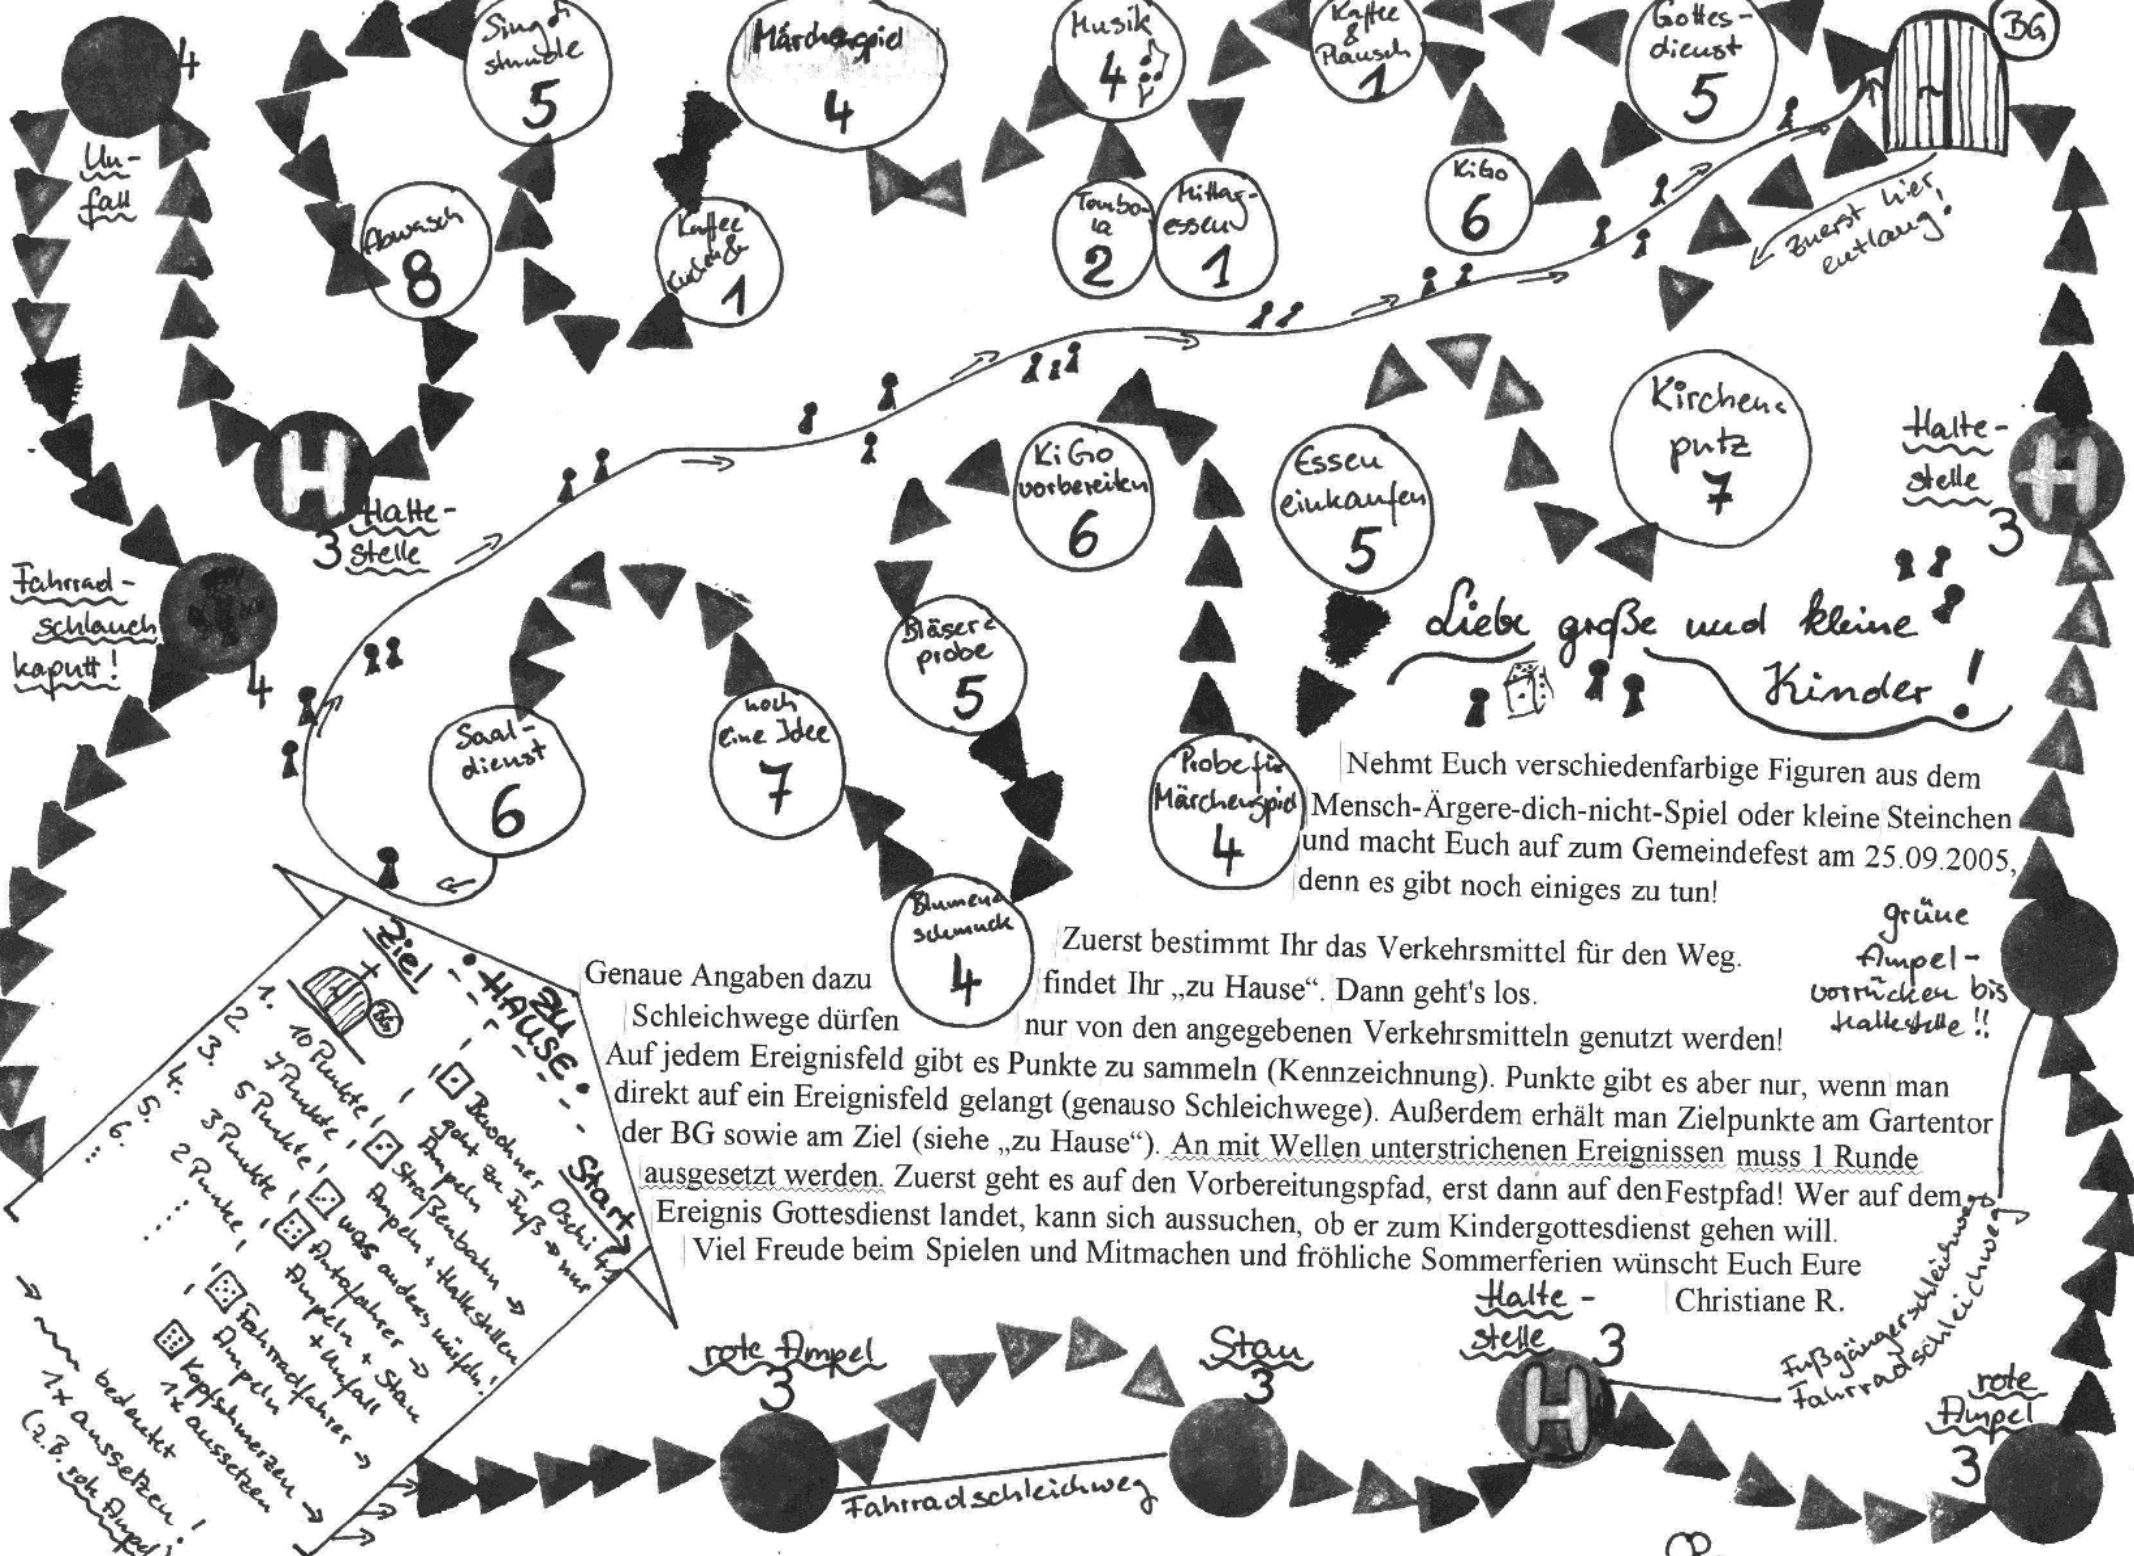 4
Un-
fall
Sing-
stunde
5
Märchenspiel
4
Musik
4
Kaffee
&
Plausch
1
Gottes-
dienst
5
BG
Abwasch
8
Kaffee
Kuchen &
1
Tombo-
la
2
Mittag-
essen
1
KiGo
6
zuerst hier,
entlang!
Halte-
stelle
3
KiGo
vorbereiten
6
Essen
einkaufen
5
Kirchen-
putz
7
Halte-
stelle
3
H
H
Fahrrad-
schlauch
kaputt!
4
Saal-
dienst
6
noch
eine Idee
7
Bläser-
probe
5
Blumen-
schmuck
4
Probe für
Märchenspiel
4
Liebe große und kleine
Kinder!
Nehmt Euch verschiedenfarbige Figuren aus dem
Mensch-Ärgere-dich-nicht-Spiel oder kleine Steinchen
und macht Euch auf zum Gemeindefest am 25.09.2005,
denn es gibt noch einiges zu tun!
Zuerst bestimmt Ihr das Verkehrsmittel für den Weg.
Genaue Angaben dazu findet Ihr „zu Hause“. Dann geht's los.
Schleichwege dürfen nur von den angegebenen Verkehrsmitteln genutzt werden!
Auf jedem Ereignisfeld gibt es Punkte zu sammeln (Kennzeichnung). Punkte gibt es aber nur, wenn man
direkt auf ein Ereignisfeld gelangt (genauso Schleichwege). Außerdem erhält man Zielpunkte am Gartentor
der BG sowie am Ziel (siehe „zu Hause“). An mit Wellen unterstrichenen Ereignissen muss 1 Runde
ausgesetzt werden. Zuerst geht es auf den Vorbereitungspfad, erst dann auf den Festpfad! Wer auf dem
Ereignis Gottesdienst landet, kann sich aussuchen, ob er zum Kindergottesdienst gehen will.
Viel Freude beim Spielen und Mitmachen und fröhliche Sommerferien wünscht Euch Eure
Christiane R.
grüne
Ampel-
vorrücken bis
Haltestelle!!
Ziel
BG
1. 10 Punkte
2. 7 Punkte
3. 5 Punkte
4. 3 Punkte
5. 2 Punkte
6.
ZU
HAUSE
Start
Bewohner Oschi 41
geht zu Fuß → nur
Ampeln
Straßenbahn →
Ampeln + Haltestellen
was anders würfeln!
Autofahrer →
Ampeln + Stau
+ Unfall
Fahrradfahrer →
Ampeln
Kopfschmerzen →
1x aussetzen
→ bedeutet
1x aussetzen!
(z.B. rote Ampel)
rote Ampel
3
Fahrradschleichweg
Stau
3
Halte-
stelle
3
H
Fußgängerschleichweg
Fahrradschleichweg
rote
Ampel
3